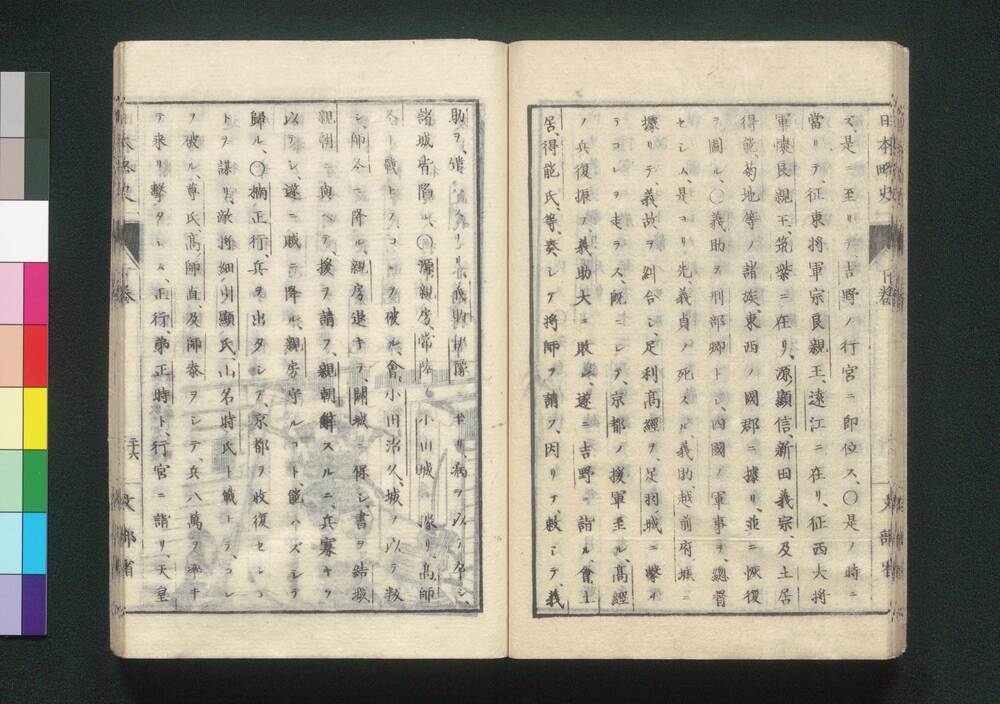 日本略史
ズ、是ニ至リテ、吉野ノ行宮ニ即位ス、〇是ノ時ニ
當リテ征東將軍宗良親王、遠江ニ在リ、征西大將
軍懷良親王、筑紫ニ在リ、源顯信、新田義宗、及土居
得能、菊地等ノ諸族、東西ノ國郡ニ據リ、並ニ恢復
ヲ圖ル、〇義助ヲ刑部卿トシ、四國ノ軍事ヲ總督
セシム、是ヨリ先、義貞ノ死スルヤ、義助、越前府城ニ
據リテ義故ヲ糾合シ、足利高經ヲ、足羽城ニ撃チ
テコレヲ走ラス、既ニシテ、京都ノ援軍至ル、高經
ノ兵復振フ、義助大ニ敗レ、遂ニ吉野ニ詣ル、會土
居、得能氏等、奏シテ將帥ヲ請フ、因リテ、敕シテ、義
助ヲ
諸城皆陷ル、〇源親房、常陸ノ小田城ニ據リ、高師
冬ト戰ヒテコレヲ破ル、會小田治久、城ヲ以テ叛
シ、師冬ニ降ル、親房退キテ、關城ニ保シ、書ヲ結城
親朝ニ與ヘテ、援ヲ請フ、親朝辭スルニ、兵寡キヲ
以テシ、遂ニ賊ニ降ル、親房守ルコト能ハズシテ
歸ル、〇楠正行、兵ヲ出タシテ京都ヲ收復センコ
トヲ謀リ、敵將細川顯氏、山名時氏ト戰ヒテ、コレ
ヲ破ル、尊氏、高師直及師泰ヲシテ、兵八萬ヲ率ヰ
テ來リ撃タシム、正行、弟正時ト、行宮ニ詣リ、天皇
二十六
文部省